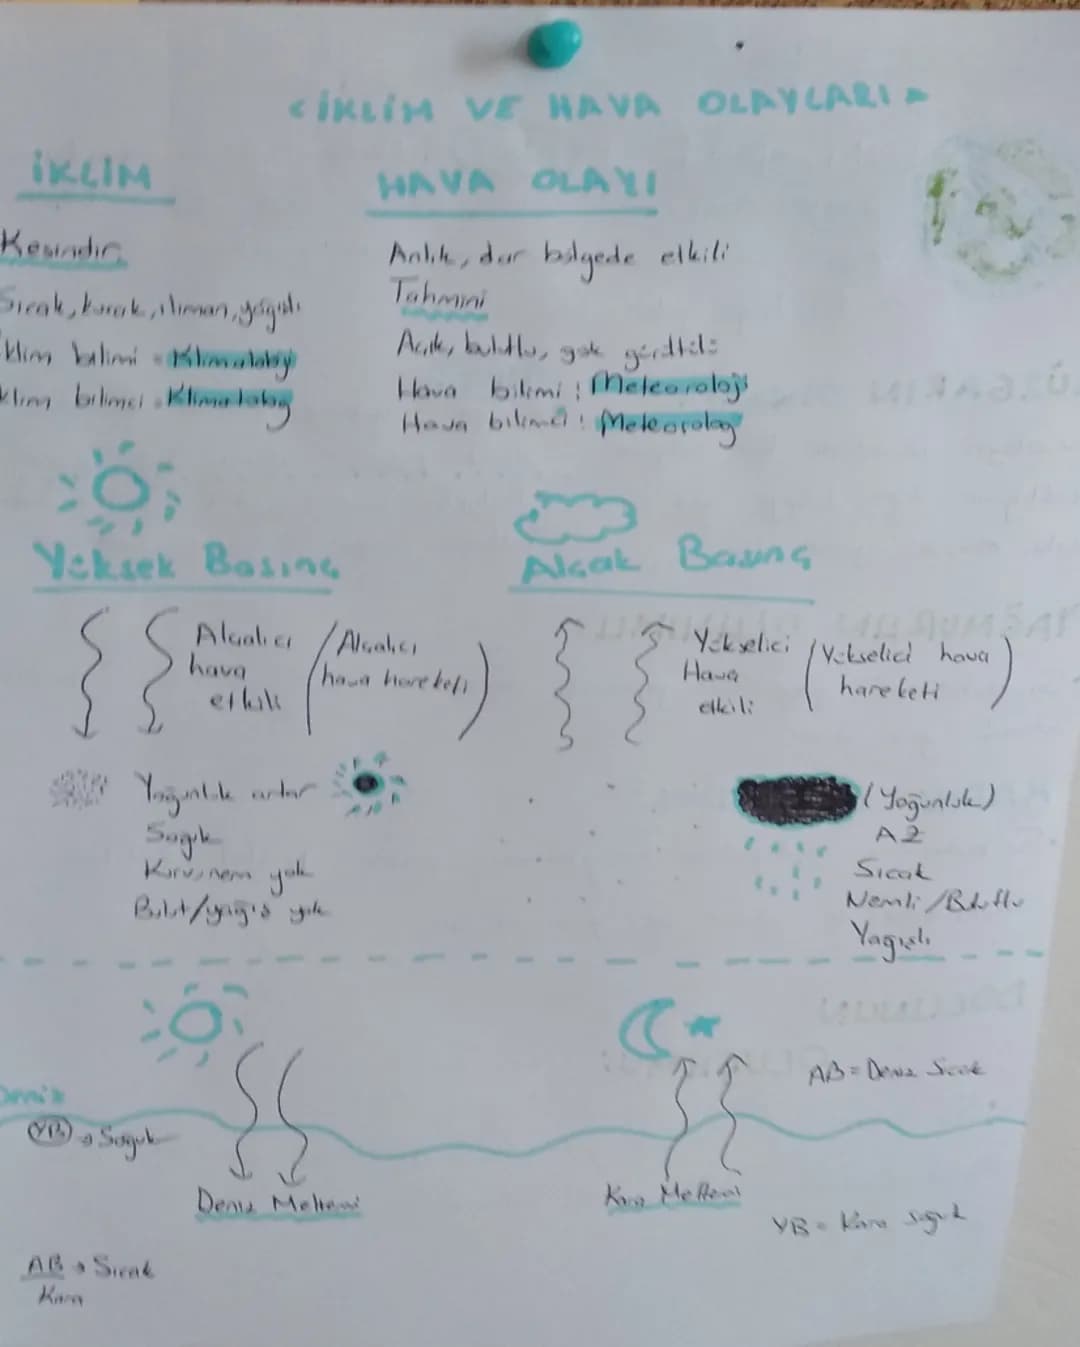 <İKLİM VE HAVA OLAYLARI
İKLİM
Kesindir
Sıcak, kurak, ılıman, yağışlı
klim bilimi = Klimatoloji
klim bilimci = Klimatolog
HAVA OLAYI
Anlık, dar bölgede etkili
Tahmini
Açık, bulutlu, gök gürültülü
Hava bilimi : Meteoroloji
Hava bilimci : Meteorolog
Yüksek Basınç
Alçalıcı
hava
etkili
(Alçalıcı
hava hareketi)
Yoğunluk artar
Soğuk
Kuru, nem yok
Bulut/yağış yok
Alçak Basınç
Yükselici
Hava
etkili
(Yükselici hava
hareketi)
(Yoğunluk)
AZ
Sıcak
Nemli/Bulutlu
Yağışlı
Deniz
YB → Soğuk
Deniz Meltemi
AB → Sıcak
Kara
AB = Deniz Sıcak
Kara Meltemi
YB = Kara soğuk